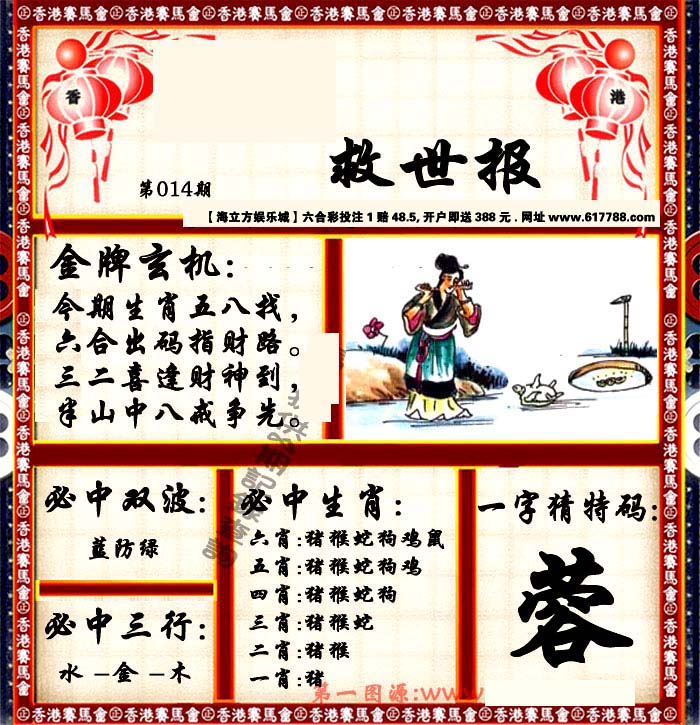 香港賽馬會
香
港
救世报
第014期
【海立方娱乐城】六合彩投注1赔48.5,开户即送388元.网址www.617788.com
金牌玄机:
今期生肖五八找,
六合出码指财路。
三二喜逢财神到,
半山中八戒争先。
必中双波:
蓝防绿
必中三行:
水–金–木
必中生肖:
六肖:猪猴蛇狗鸡鼠
五肖:猪猴蛇狗鸡
四肖:猪猴蛇狗
三肖:猪猴蛇
二肖:猪猴
一肖:猪
一字猜特码:
蓉
第一图源:www